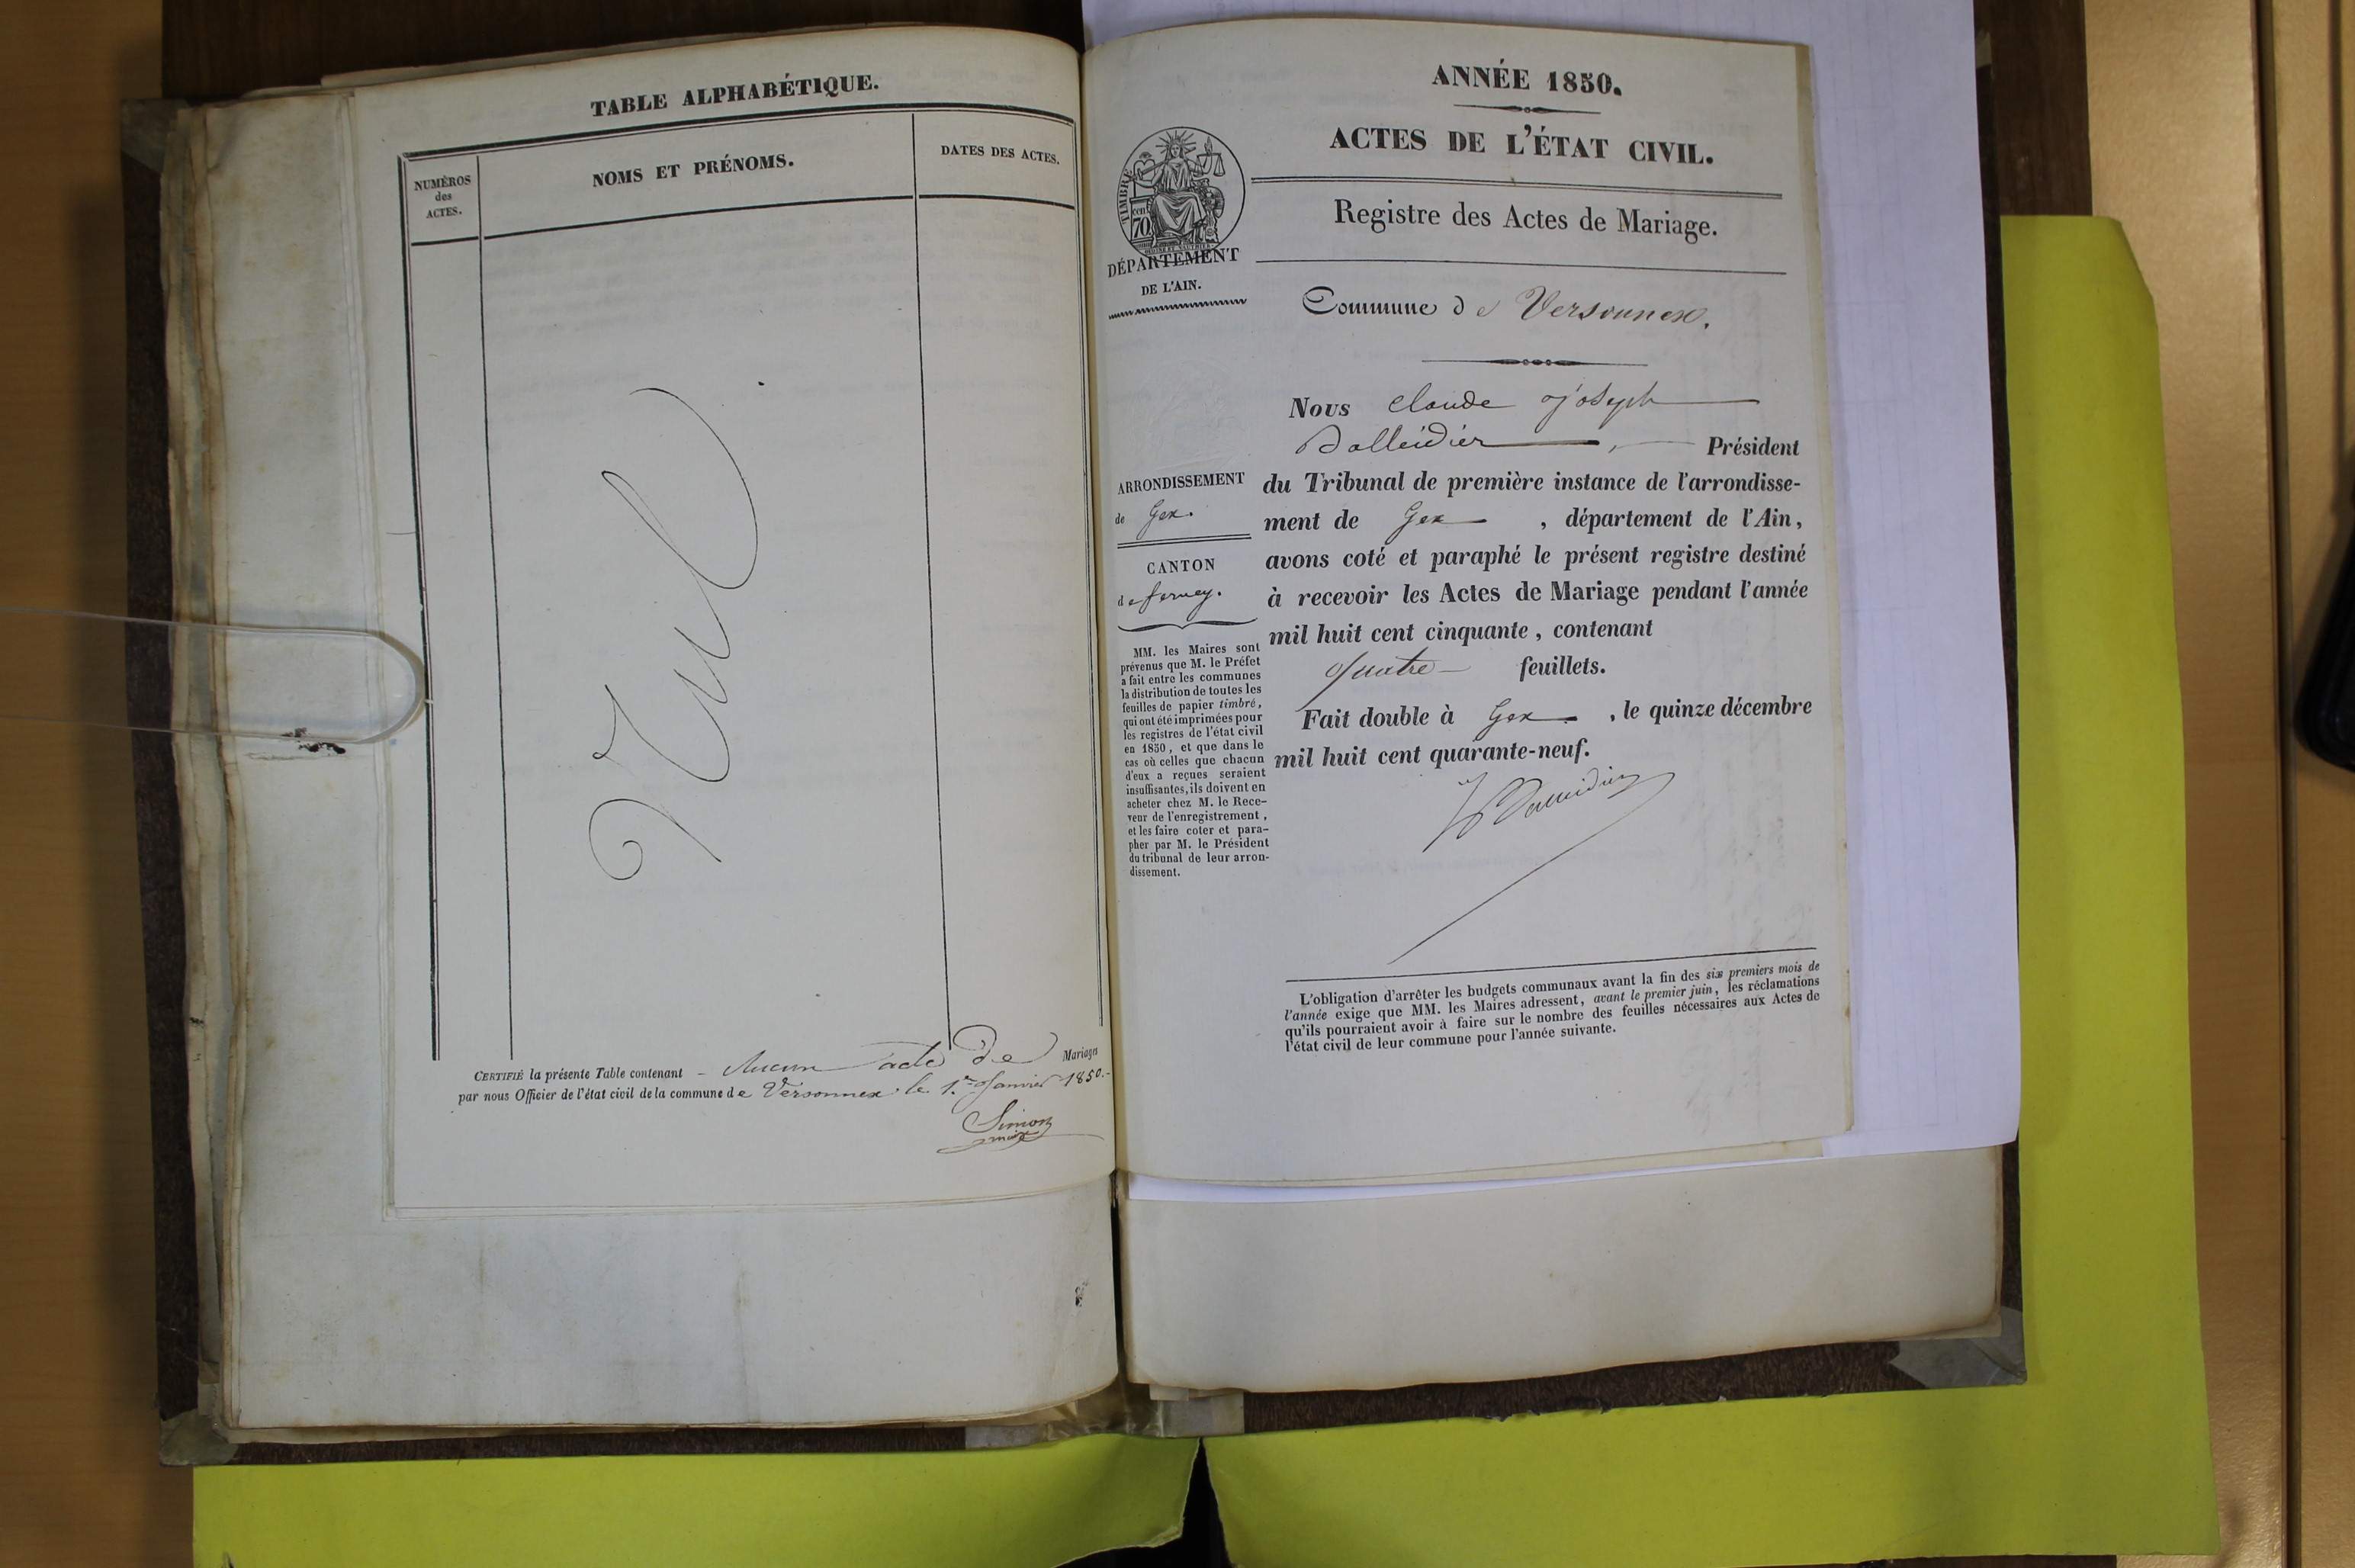 TABLE ALPHABÉTIQUE.
NUMÉROS
des
ACTES.
NOMS ET PRÉNOMS.
DATES DES ACTES.
Nul
CERTIFIÉ la présente Table contenant - Aucun acte de Mariages
par nous Officier de l'état civil de la commune de Versonnex le 1.er Janvier 1850.-
Simon
maire
ANNÉE 1850.
ACTES DE L'ÉTAT CIVIL.
Registre des Actes de Mariage.
TIMBRE
cent
70
DÉPARTEMENT
DE L'AIN.
Commune de Versonnex.
Nous Claude Joseph
, Président
du Tribunal de première instance de l'arrondisse-
ment de Gex , département de l'Ain,
avons coté et paraphé le présent registre destiné
à recevoir les Actes de Mariage pendant l'année
mil huit cent cinquante, contenant
quatre feuillets.
Fait double à Gex , le quinze décembre
mil huit cent quarante-neuf.
ARRONDISSEMENT
de Gex.
CANTON
de ferney.
MM. les Maires sont
prévenus que M. le Préfet
a fait entre les communes
la distribution de toutes les
feuilles de papier timbré,
qui ont été imprimées pour
les registres de l'état civil
en 1850, et que dans le
cas où celles que chacun
d'eux a reçues seraient
insuffisantes, ils doivent en
acheter chez M. le Rece-
veur de l'enregistrement,
et les faire coter et para-
pher par M. le Président
du tribunal de leur arron-
dissement.
L'obligation d'arrêter les budgets communaux avant la fin des six premiers mois de
l'année exige que MM. les Maires adressent, avant le premier juin, les réclamations
qu'ils pourraient avoir à faire sur le nombre des feuilles nécessaires aux Actes de
l'état civil de leur commune pour l'année suivante.